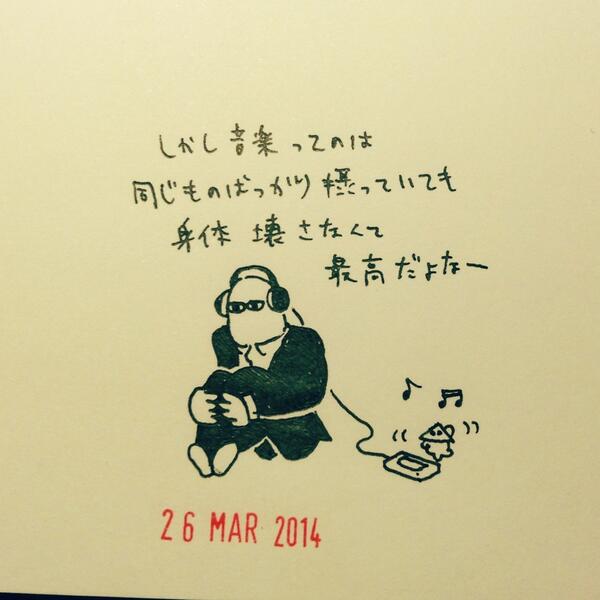 しかし音楽ってのは
同じものばっかり摂っていても
身体壊さなくて
最高だよなー
26 MAR 2014